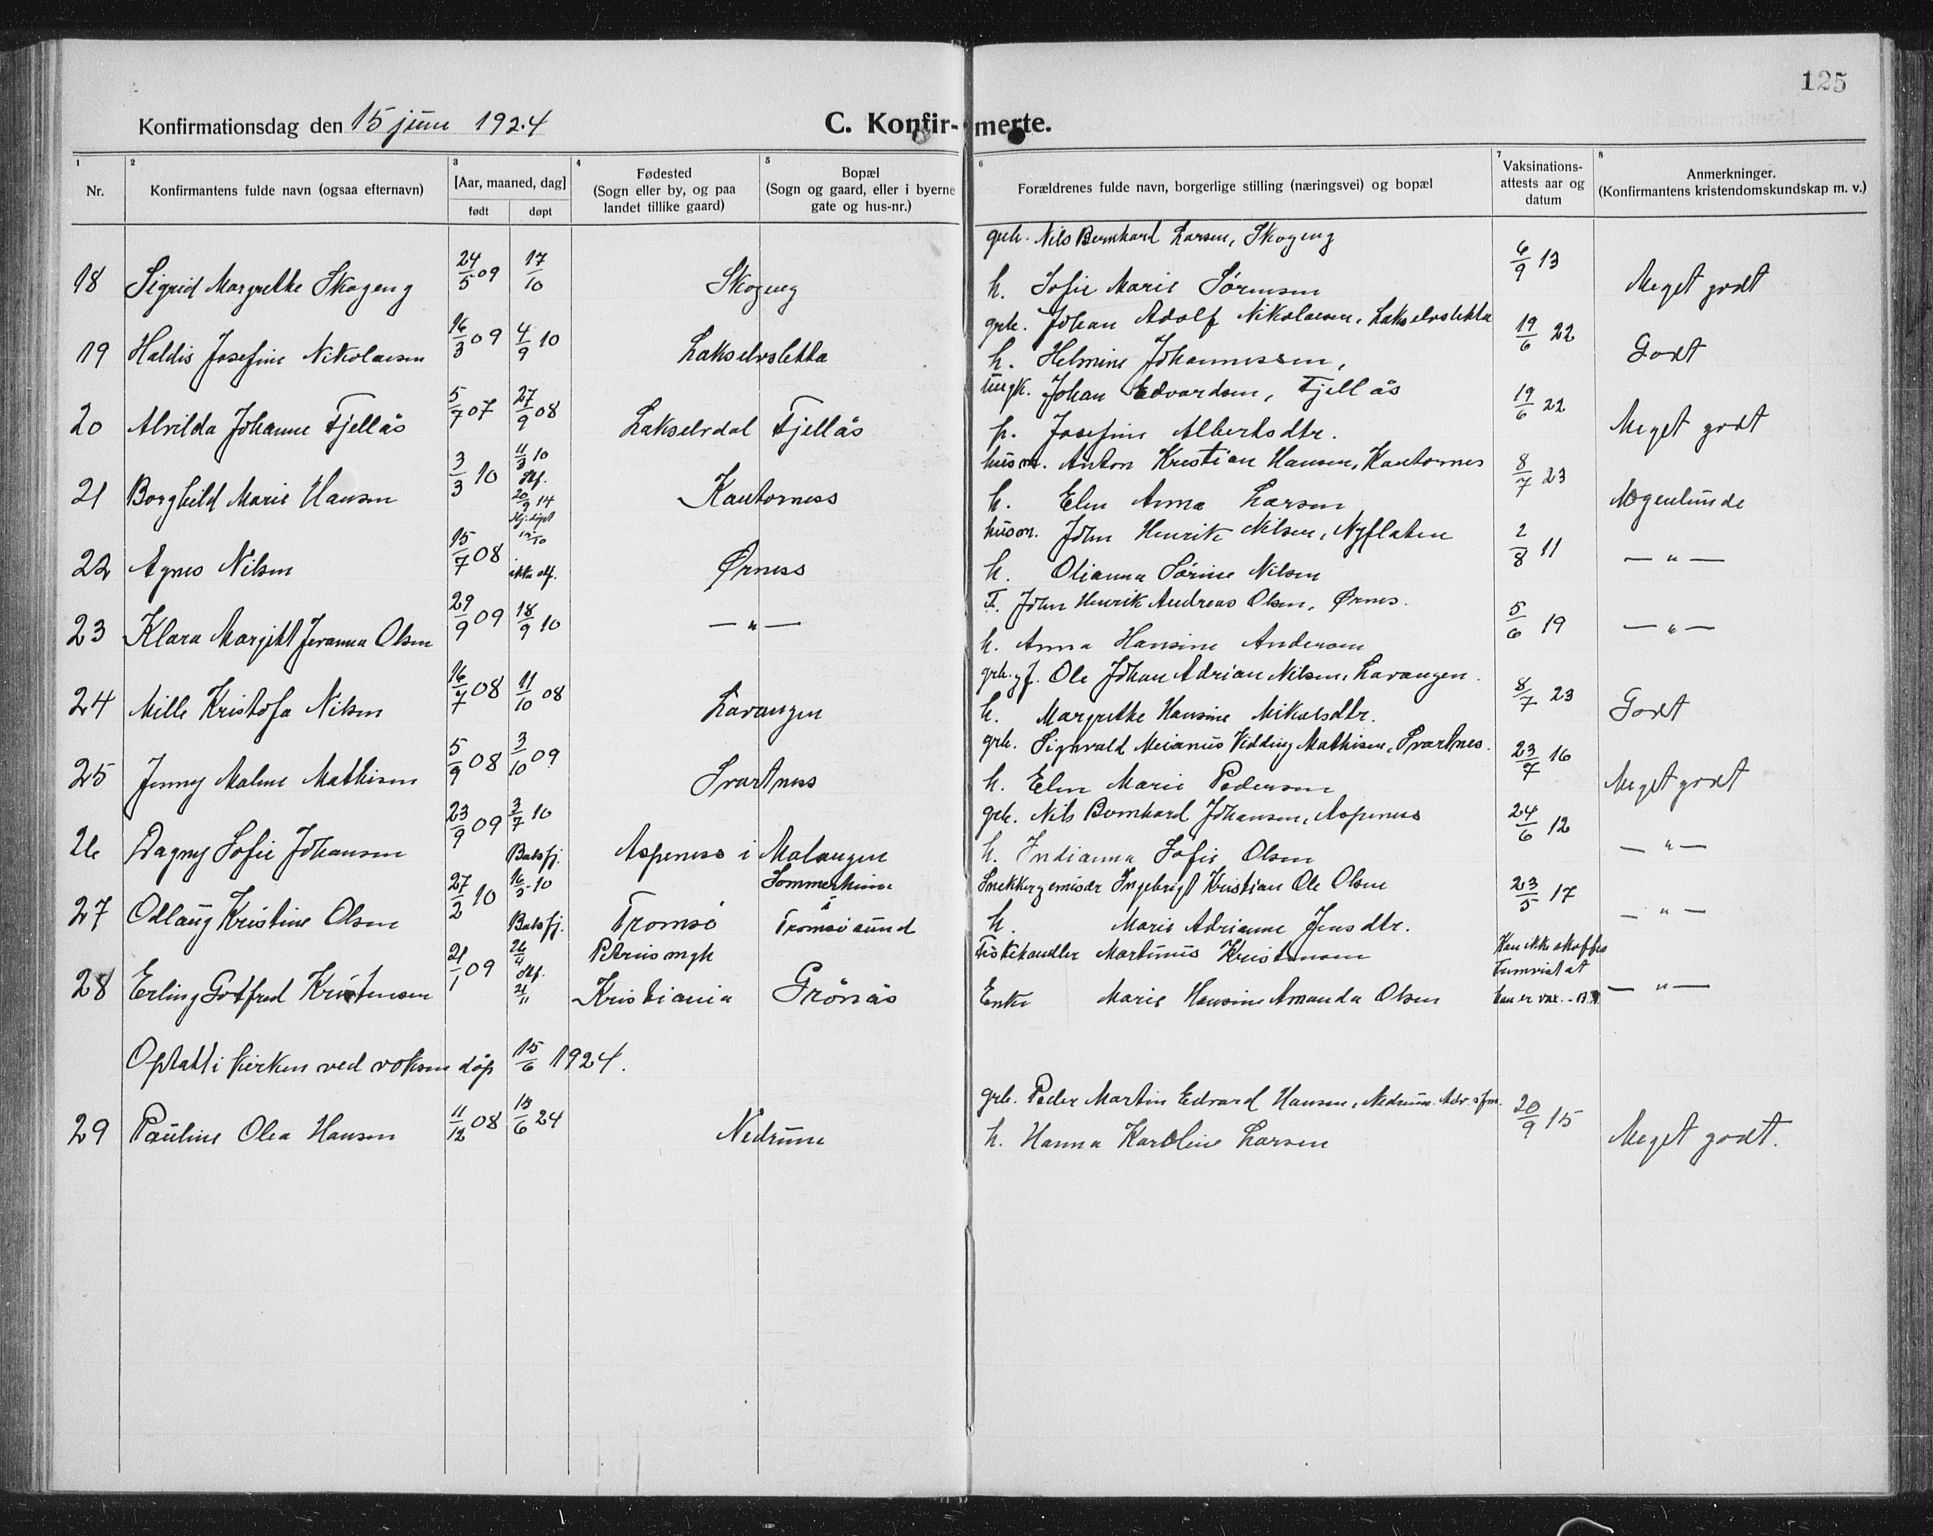 125
Konfirmationsdag den 15 juni 1924
C. Konfir-merte.
1 2 3 4 5 6 7 8
Nr.
Konfirmantens fulde navn (ogsaa efternavn)
[Aar, maaned, dag]
født døpt
Fødested
(Sogn eller by, og paa
landet tillike gaard)
Bopæl
(Sogn og gaard, eller i byerne
gate og hus-nr.)
Forældrenes fulde navn, borgerlige stilling (næringsvei) og bopæl
Vaksinations-
attests aar og
datum
Anmerkninger.
(Konfirmantens kristendomskundskap m. v.)
grb. Nils Bernhard Larsen, Skogeng
18 Sigrid Margrethe Skogeng 24/5 09 17/10 Skogeng h. Sofie Marie Sørensen 6/9 13 Meget godt
grb. Johan Adolf Nikolaisen, Lakselvsletta
19 Haldis Josefine Nikolaisen 16/3 09 4/9 10 Lakselvsletta h. Helmine Johannessen, 19/6 22 Godt
ungk. Johan Edvardsen, Fjellås
20 Alvilda Johanne Fjellås 5/7 07 27/9 08 Lakselvdal Fjellås p. Josefine Albertsdtr. 19/6 22 Meget godt
husm. Anton Kristian Hansen, Kantornes
21 Borghild Marie Hansen 3/3 10 11/3 10 Stf. 20/9 14 Kantorness h. Elen Anna Larsen 8/7 23 Mogenlunde
husm. John Henrik Nilsen, Nyflaten
22 Agnes Nilsen 15/7 08 Hj. døpt ikke stf. Ørness h. Olianna Sørine Nilsen 2/8 11 — " —
F. John Henrik Andreas Olsen, Ørnes.
23 Klara Margitt Jovanna Olsen 29/9 09 18/9 10 — " — h. Anna Hansine Andersen 5/6 19 — " —
grb. gf. Ole Johan Adrian Nilsen, Lavangen.
24 Mille Kristofa Nilsen 16/7 08 11/10 08 Lavangen h. Margrethe Hansine Mikalsdtr. 8/7 23 Godt
grb. Signvald Meianus Vidding Mathisen, Svartnes.
25 Jenny Malene Mathisen 5/9 08 3/10 09 Svartness h. Elen Marie Pedersen 23/7 16 Meget godt
grb. Nils Bernhard Johansen, Aspeness
26 Dagny Sofie Johansen 23/9 09 3/7 10 Balsfj. Aspeness i Malangen h. Indianna Sofie Olsen 24/6 12 — " —
Sommerhinn i Snekkergemisær Ingebrigt Kristian Ole Olsen
27 Odlaug Kristine Olsen 27/2 10 16/5 10 Balsfj. Tromsø Tromsøsund h. Marie Adrianne Jensdtr. 23/5 17 — " —
Petrus mgh Fiskehandler Martinus Kristensen Kan ikke skaffes
28 Erling Gotfred Kristensen 21/1 09 26/4 Stf. 21/11 Kristiania Grønås Enke Marie Hansine Amanda Olsen — " —
Optatt i kirken ved voksen døp 15/6 1924.
grb. Peder Martin Edvard Hansen, Nedrum.
29 Pauline Olea Hansen 11/12 08 15/6 24 Nedrum h. Hanna Karoline Larsen 20/9 15 Meget godt.